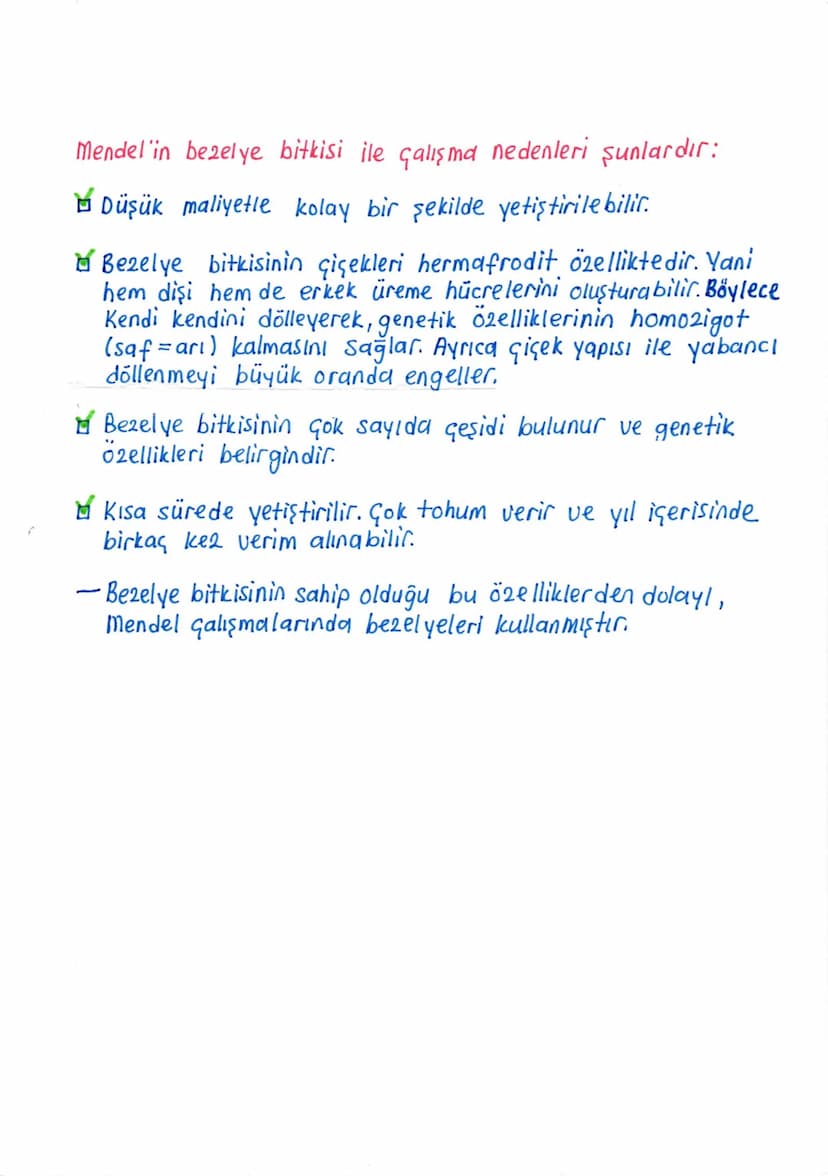 Mendel'in bezelye bitkisi ile çalışma nedenleri şunlardır:
Düşük maliyetle kolay bir şekilde yetiştirilebilir.
Bezelye bitkisinin çiçekleri hermafrodit özelliktedir. Yani
hem dişi hem de erkek üreme hücrelerini oluşturabilir. Böylece
Kendi kendini dölleyerek, genetik özelliklerinin homozigot
(saf = arı) kalmasını sağlar. Ayrıca çiçek yapısı ile yabancı
döllenmeyi büyük oranda engeller.
Bezelye bitkisinin çok sayıda çeşidi bulunur ve genetik
özellikleri belirgindir.
Kısa sürede yetiştirilir. Çok tohum verir ve yıl içerisinde
birkaç kez verim alınabilir.
— Bezelye bitkisinin sahip olduğu bu özelliklerden dolayı,
Mendel çalışmalarında bezelyeleri kullanmıştır.